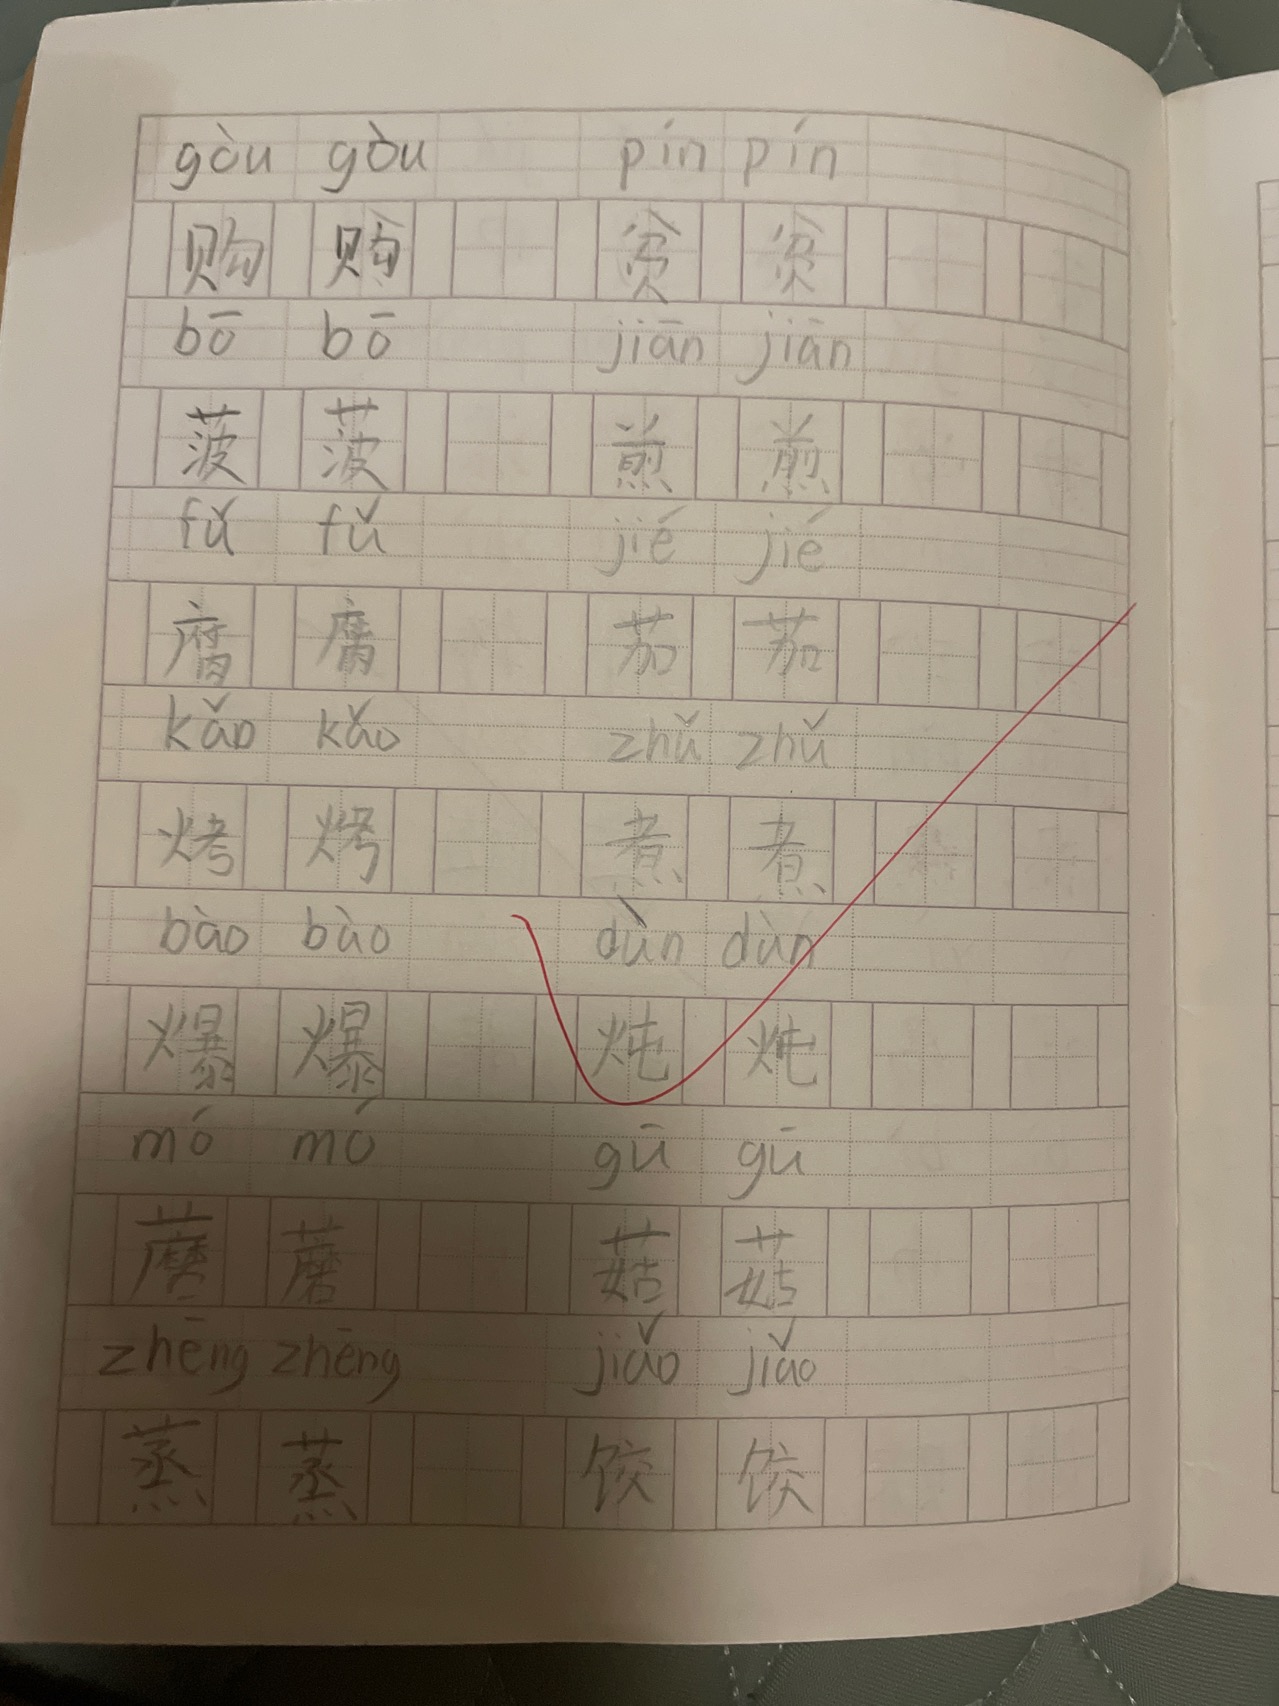 gòu gòu pín pín
购 购 贫 贫
bō bō jiān jiān
菠 菠 煎 煎
fǔ fǔ jié jié
腐 腐 茄 茄
kǎo kǎo zhǔ zhǔ
烤 烤 煮 煮
bào bào dùn dùn
爆 爆 炖 炖
mó mó gū gū
蘑 蘑 菇 菇
zhēng zhēng jiǎo jiǎo
蒸 蒸 饺 饺